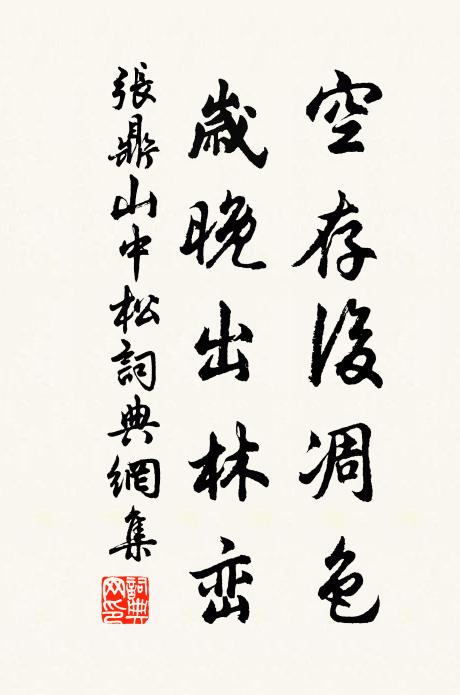 空存後凋色
歲晚出林峦
張鼎山中松詞典網集
詞典网印